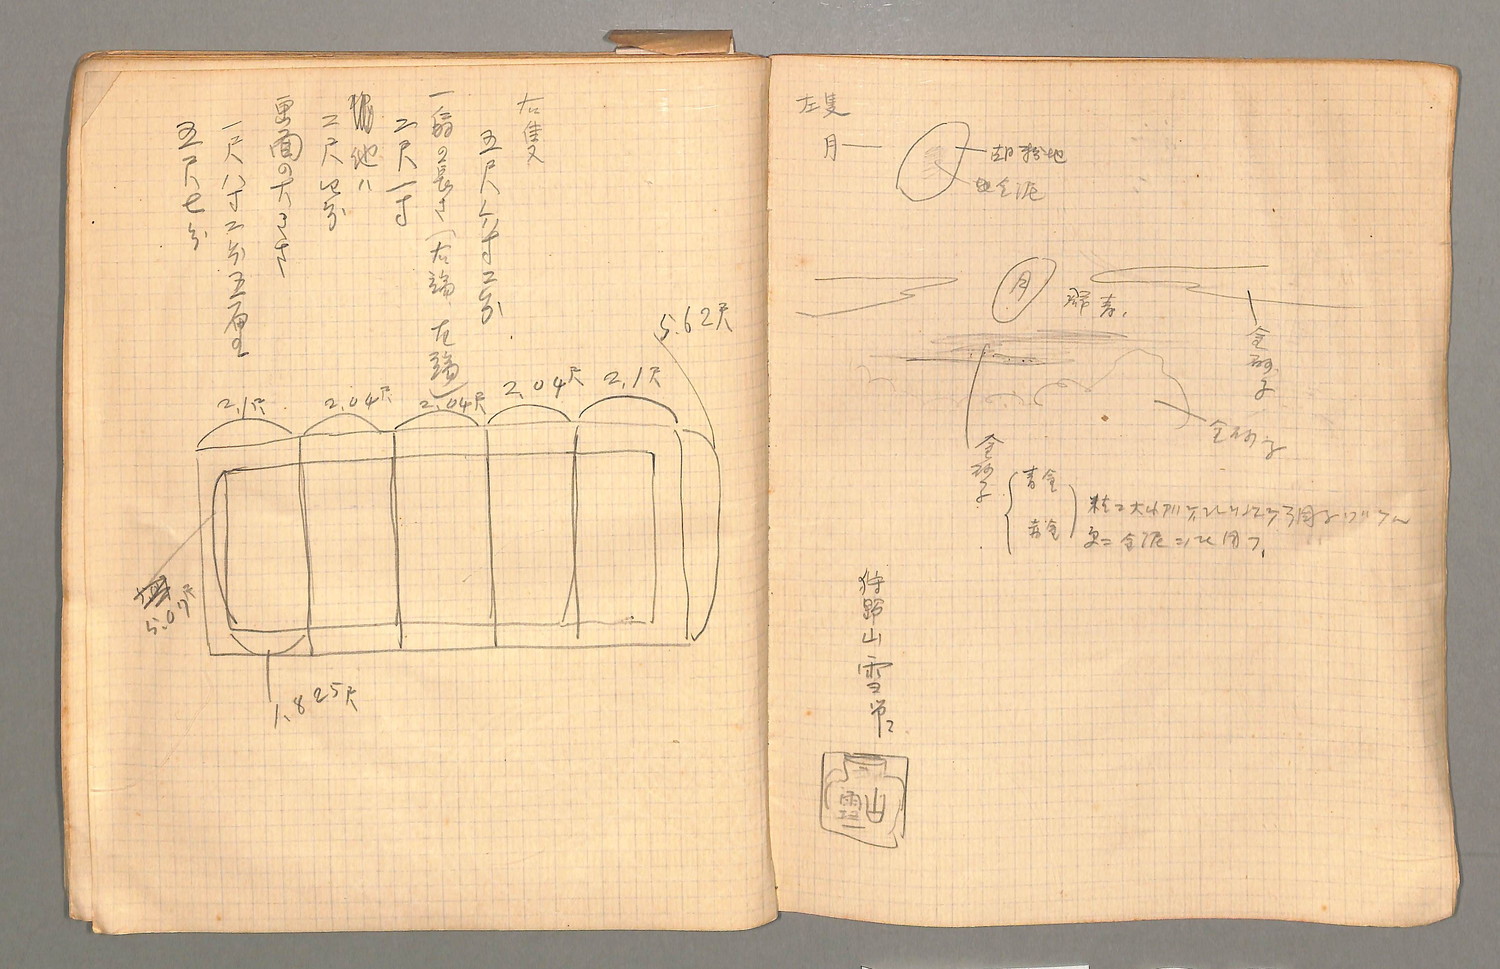 右隻
五尺六寸二分
一扇の長さ(右端、左端)
二尺一寸
他ハ
二尺四分
画面の大きさ
一尺八寸二分五厘
五尺七分
5.62尺
2.1尺
2.04尺
2.04尺
2.04尺
2.1尺
5.07尺
1.825尺
左隻
月
胡粉地
金泥
月
群青
金砂子
金砂子
金砂子
青金
赤金
更ニ金泥ニテ用フ
狩野山雪筆
山雪